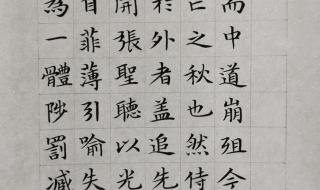 而中道崩殂今
亡之秋也然侍
於外者盖追先
開張聖聽以光
自菲薄引喻失
為一體陟罰臧